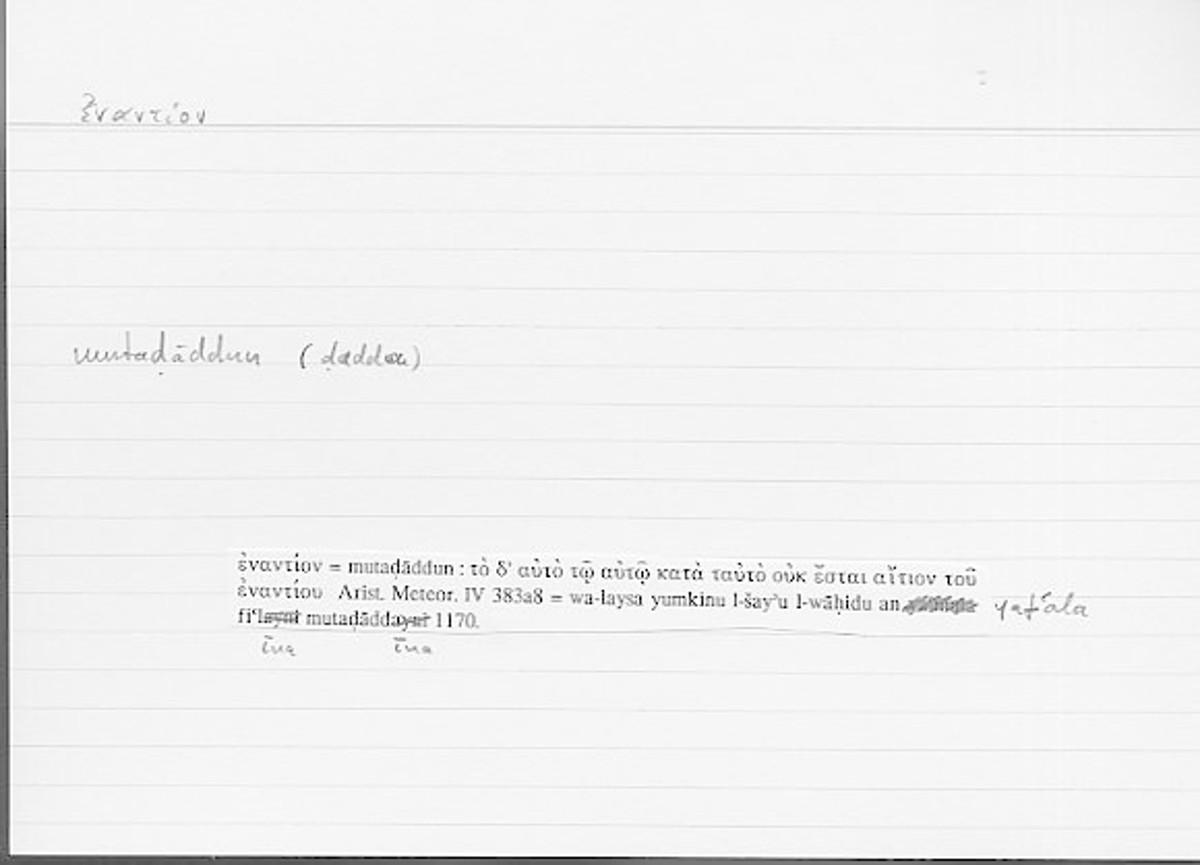 ἐναντίον
mutaḍāddun (ḍadda)
ἐναντίον = mutaḍāddun : τὸ δ' αὐτὸ τῷ αὐτῷ κατὰ ταὐτὸ οὐκ ἔσται αἴτιον τοῦ
ἐναντίου Arist. Meteor. IV 383a8 = wa-laysa yumkinu l-šay'u l-wāḥidu an yafʿala
fiʿlayni mutaḍāddayni 1170.
īna īna